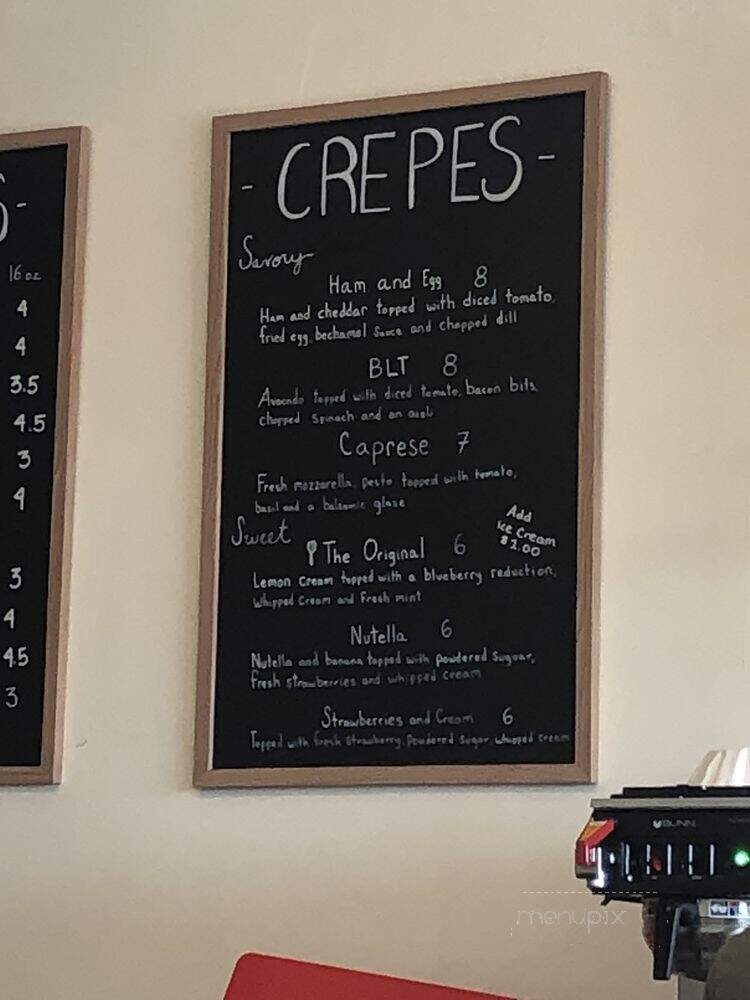 16 oz
4
4
3.5
4.5
3
4
3
4
4.5
3
- CREPES -
Savory
Ham and Egg 8
Ham and cheddar topped with diced tomato,
fried egg, bechamel sauce and chopped dill
BLT 8
Avocado topped with diced tomato, bacon bits,
chopped spinach and an aioli
Caprese 7
Fresh mozzarella, pesto topped with tomato,
basil and a balsamic glaze
Sweet
Add
Ice Cream
$2.00
The Original 6
Lemon Cream topped with a blueberry reduction,
Whipped Cream and Fresh mint
Nutella 6
Nutella and banana topped with powdered sugar,
fresh strawberries and whipped cream
Strawberries and Cream 6
Topped with fresh strawberry, powdered sugar, whipped cream
BUNN
menupix